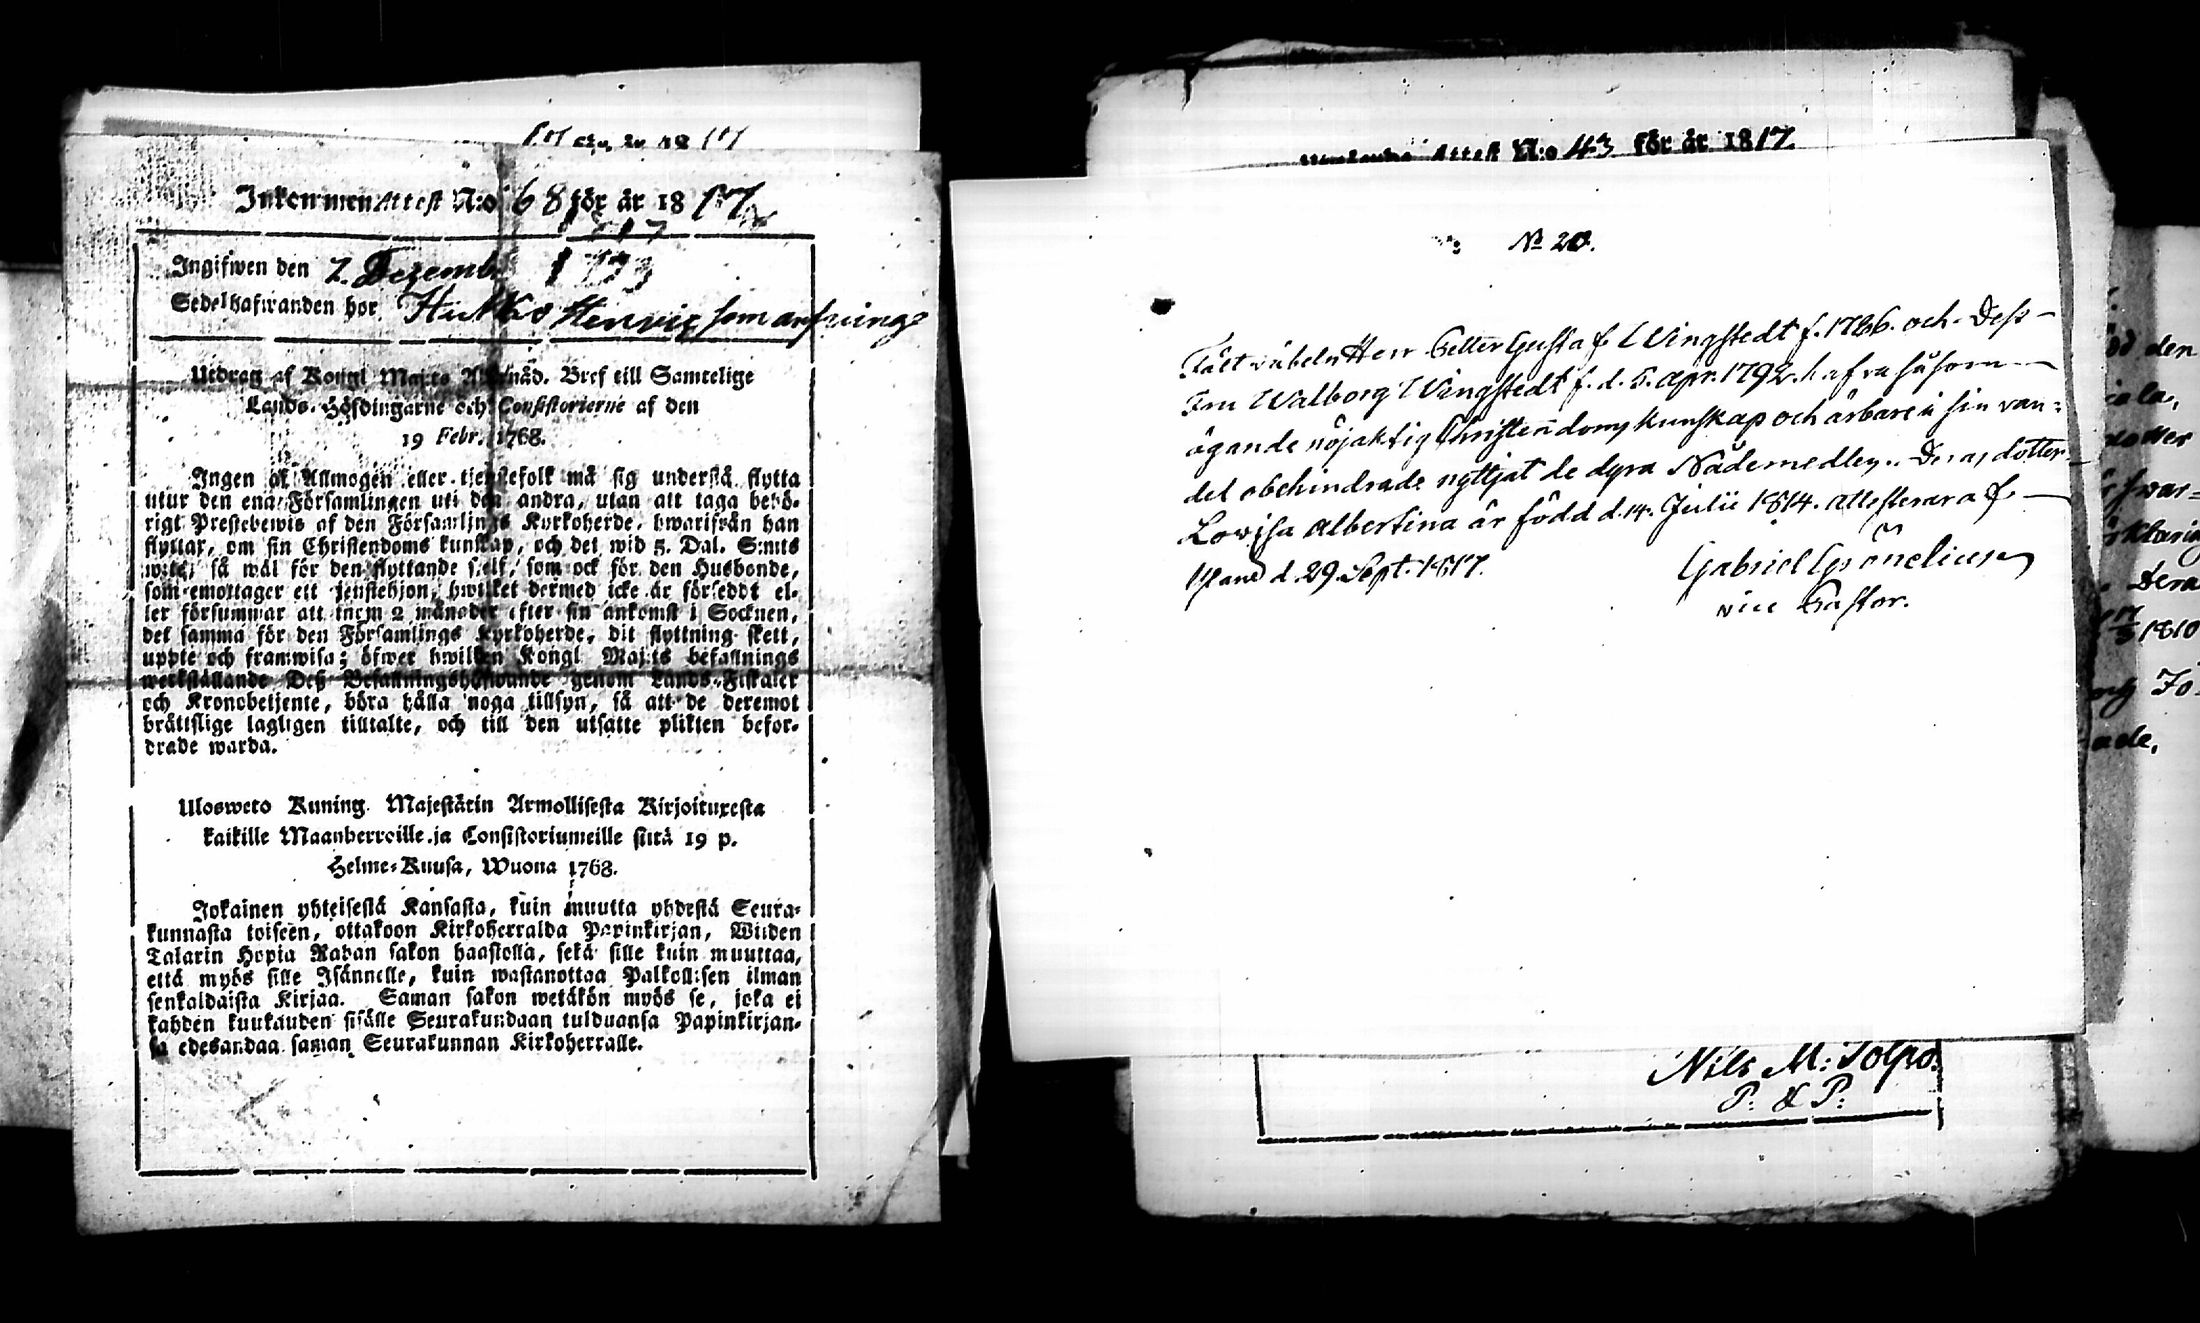 för år 1817
Inkommen Attest N:o 68 för år 1817
Ingifwen den 7. Dezemb
Sedelhafwanden bor Hukko Henric som
Utdrag af Kongl Maj:ts Allernåd. Bref till Samtelige
Lands-Höfdingarne och Consistorierne af den
19 Febr. 1768.
Ingen af Allmogen eller tjenstefolk må sig understå flytta
utur den ena Församlingen uti den andra, utan att taga behö-
rigt Prestebewis af den Församlings Kyrkoherde, hwarifrån han
flyttar, om sin Christendoms kunskap, och det wid 5. Dal. S:mts
wite, så wäl för den flyttande sielf, som ock för den Husbonde,
som emottager ett tjenstehjon, hwilket dermed icke är försedt el-
ler försummar att inom 2 månader efter sin ankomst i Socknen,
det samma för den Församlings Kyrkoherde, dit flyttning skett,
uppte och framwisa; öfwer hwilken Kongl Maj:ts befallnings
werkställande Deß Befallningshafwande genom Lands-Fiskaler
och Kronobetjente, böra hålla noga tillsyn, så att de deremot
brättslige lagligen tilltalte, och till den utsatte plikten befor-
drade warda.
Ulosweto Kuning. Majestätin Armollisesta Kirjoituxesta
kaikille Maanherroille ja Consistoriumeille siitä 19 p.
Helme-Kuusa, Wuona 1768.
Jokainen yhteisestä Kansasta, kuin muutta yhdestä Seura-
kunnasta toiseen, ottakoon Kirkoherralda Papinkirjan, Wiiden
Talarin Hopia Rahan sakon haastolla, sekä sille kuin muuttaa,
että myös sille Isännelle, kuin wastanottaa Palkollisen ilman
senkaldaista Kirjaa. Saman sakon wetäkön myös se, joka ei
kahden kuukauden sisälle Seurakundaan tulduansa Papinkirjan-
sa edesandaa saman Seurakunnan Kirkoherralle.
Attest N:o 43 för år 1817.
No 20.
Herr Petter Gustaf Wingstedt f. 1786. och Dess
Fru Walborg Wingstedt f. d. 5. Apr. 1792. hafva såsom
ägande nöjaktig Christendoms kunskap och ärbare i sin van-
del obehindrade nyttjat de dyra Nådemedlen. Deras dotter
Lovisa Albertina är född d. 14. Julii 1814. attesterar af
d. 29. Sept. 1817.
Gabriel Grönelius
vice Pastor.
Nils M: Tolpo.
P: & P:
den
1810
Fö-